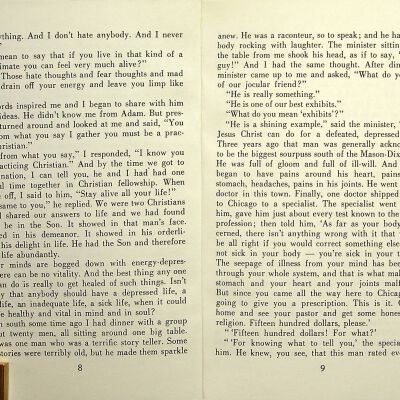 ything. And I don't hate anybody. And I never
"
mean to say that if you live in that kind of a
imate you can feel very much alive?"
Those hate thoughts and fear thoughts and mad
drain off your energy and leave you limp like
ords inspired me and I began to share with him
deas. He didn't know me from Adam. But pres-
turned around and looked at me and said, "You
om what you say I gather you must be a prac-
hristian."
from what you say," I responded, "I know you
racticing Christian." And by the time we got to
nation, I can tell you, he and I had had one
l time together in Christian fellowship. When
off, I said to him, "Stay alive all your life!"
same to you," he replied. We were two Christians
shared our answers to life and we had found
be in the Son. It showed in that man's face.
ed in his demeanor. It showed in his orderli-
his delight in life. He had the Son and therefore
life abundantly.
r minds are bogged down with energy-depres-
ere can be no vitality. And the best thing any one
an do is really to get healed of such things. Isn't
y that anybody should have a depressed life, a
ife, an inadequate life, a sick life, when it could
e healthy and vital in mind and in soul?
n south some time ago I had dinner with a group
ut twenty men, all sitting around one big table.
was one man who was a terrific story teller. Some
tories were terribly old, but he made them sparkle
8
anew. He was a raconteur, so to speak; and he had
body rocking with laughter. The minister sittin
the table from me shook his head, as if to say, "
guy!" And I had the same thought. After din
minister came up to me and asked, "What do yo
of our jocular friend?"
"He is really something."
"He is one of our best exhibits."
"What do you mean 'exhibits'?"
"He is a shining example," said the minister, "
Jesus Christ can do for a defeated, depressed
Three years ago that man was generally acknow
to be the biggest sourpuss south of the Mason-Dix
He was full of gloom and full of ill-will. And
began to have pains around his heart, pains
stomach, headaches, pains in his joints. He went
doctor in this town. Finally, one doctor shipped
to Chicago to a specialist. The specialist went
him, gave him just about every test known to the
profession; then told him, 'As far as your body
cerned, there isn't anything wrong with it that
be all right if you would correct something else
not sick in your body — you're sick in your t
The seepage of illness from your mind has been
through your whole system, and that is what mak
stomach and your heart and your joints malf
But since you came all the way here to Chicago
going to give you a prescription. This is it.
home and see your pastor and get some hones
religion. Fifteen hundred dollars, please.'
"'Fifteen hundred dollars! For what?'
"'For knowing what to tell you,' the special
him. He knew, you see, that this man rated eve
9